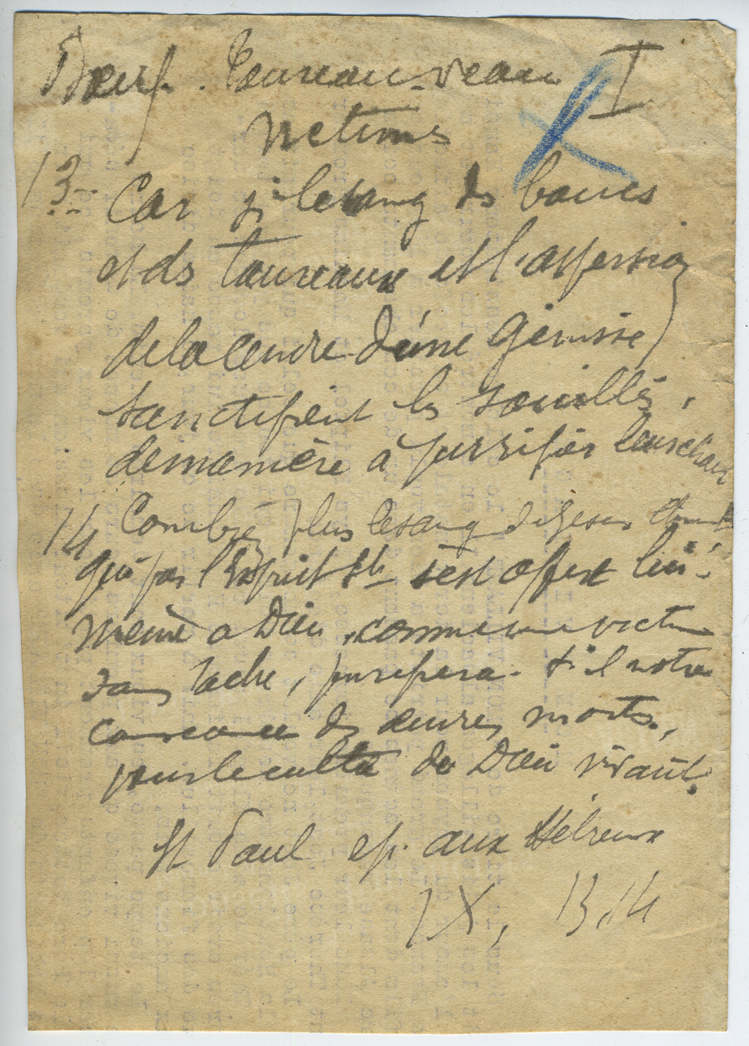 Bœuf. Taureau. veau I
Victimes
13 - Car si le sang des boucs
et des taureaux et l'aspersion
de la cendre d'une génisse
sanctifient les souillés,
de manière à purifier leur chair
14 Combien plus le sang de Jésus Christ
qui par l'Esprit St s'est offert lui-
même a Dieu, comme une victime
sans tache, purifiera-t-il notre
conscience des œuvres mortes,
pour le culte du Dieu vivant.
St Paul ep. aux Hébreux
IX, 13.14